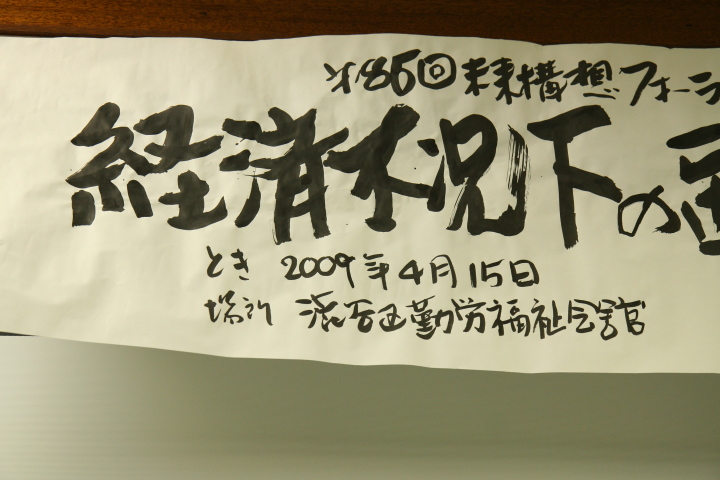 第86回未来構想フォーラ
経済不況下の
とき 2009年4月15日
場所 渋谷区勤労福祉会館